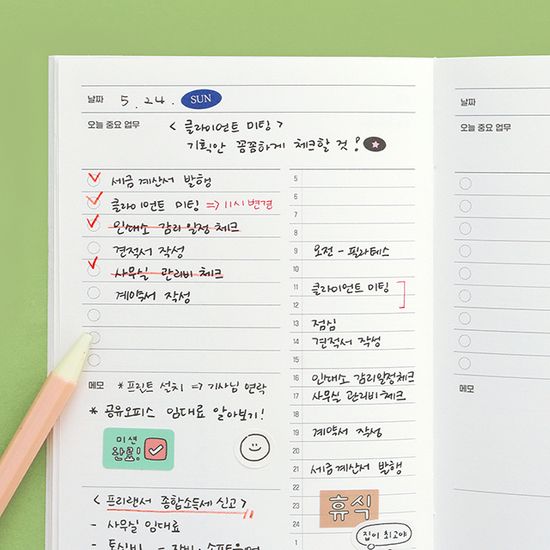 날짜 5. 24. SUN
오늘 중요 업무 < 클라이언트 미팅 >
기획안 꼼꼼하게 체크할 것!
세금계산서 발행
클라이언트 미팅 => 11시 변경
인테소 감리일정 체크
견적서 작성
사무실 관리비 체크
계약서 작성
메모 * 프린트 설치 => 기사님 연락
* 공유오피스 임대료 알아보기!
미션
완료!
< 프리랜서 종합소득세 신고 >
- 사무실 임대료
5
6
7
8
9 오전 - 필라테스
10
11 클라이언트 미팅
12
13 점심
14 견적서 작성
15
16 인테소 감리일정체크
17 사무실 관리비 체크
18
19 계약서 작성
20
21 세금계산서 발행
22
23 휴식
24
집이 최고야
날짜
오늘 중요 업무
메모